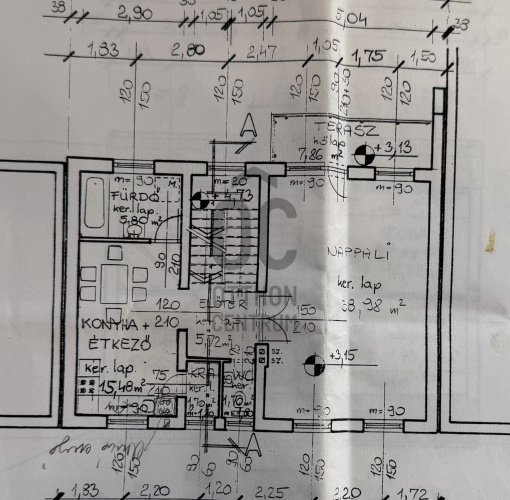 38 2,90 1,05 1,05 5,04 38
1,83 2,80 2,47 1,05 1,75 1,50
120 150 120 150 120 150 90 210+90 120 150
A
TERASZ
7,86
+3,13
m=90 M. m=20 m=90 m=90
FÜRDŐ
ker. lap
5,80 m²
+4,73
90 210
NAPPALI
ker. lap
38,98 m²
OC
OTTHON
CENTRUM
120 210
ELŐTÉR
5,72 m²
150 210
KONYHA +
ÉTKEZŐ
ker. lap
15,48 m²
75
210
KRA
WC
ker. l.
1,70 m²
1,70 m²
SZ.
SZ.
+3,15
m=90 m=90
A
120 150 90 60 90 60 120 150 120 150
1,83 2,20 1,20 2,25 2,20 1,72